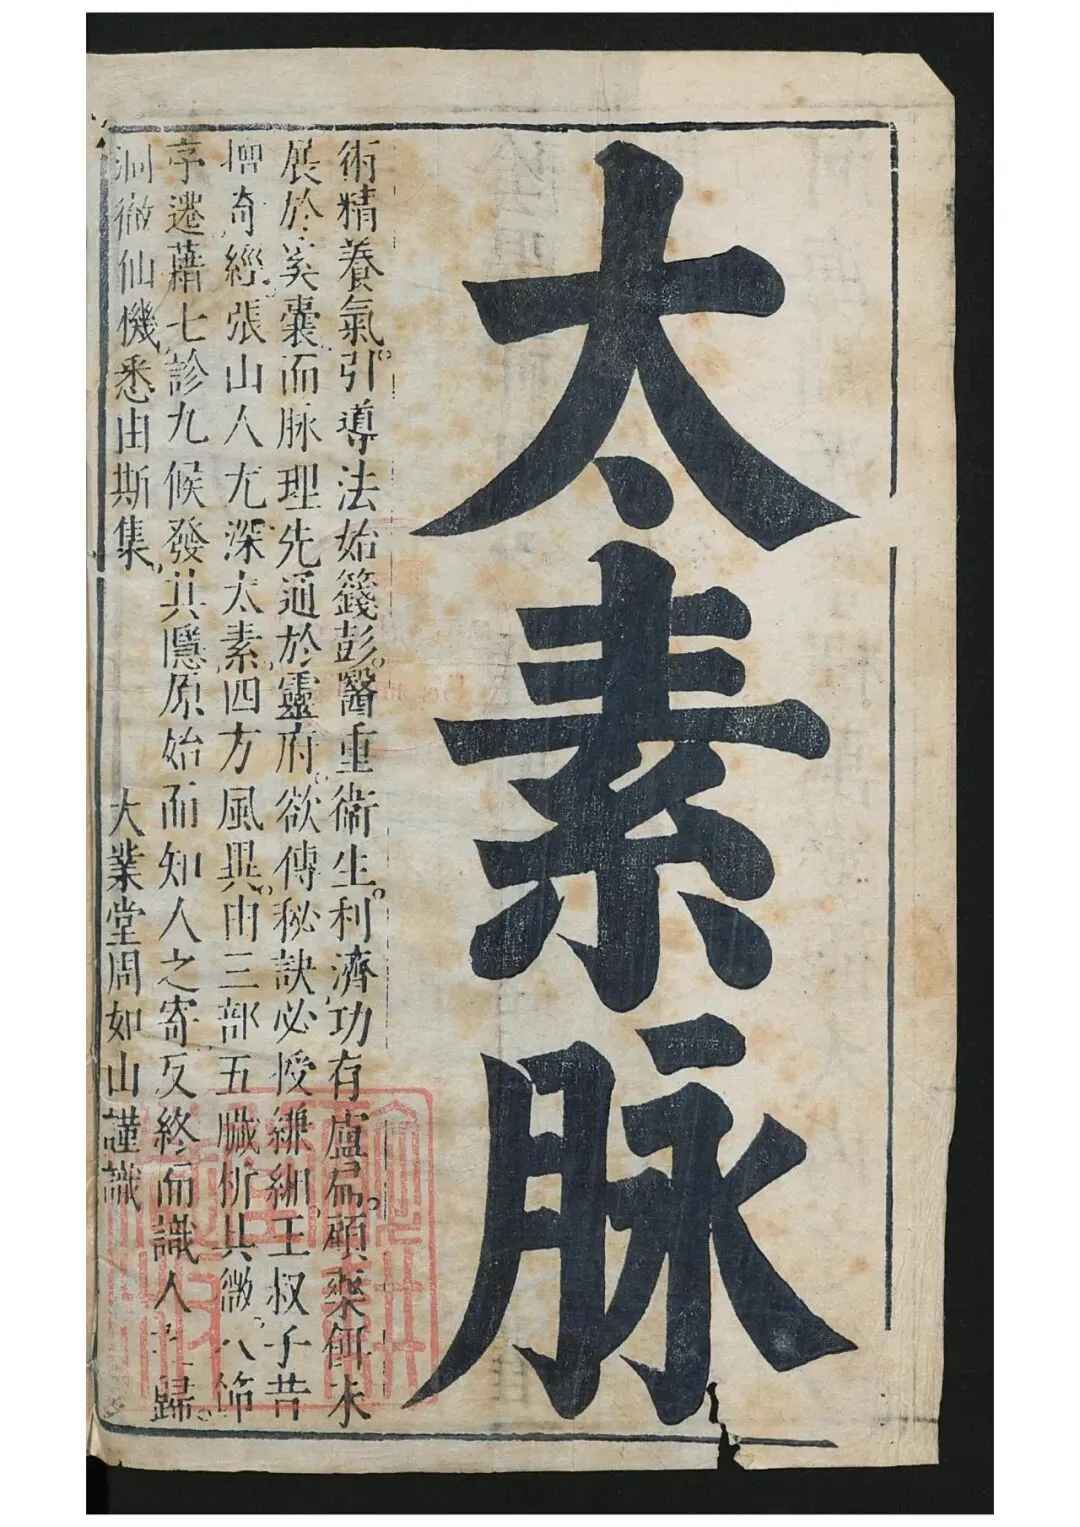 太素脉
術精養氣。引導法始籛彭。醫重衛生。利濟功存盧扁。顧藥餌未
展於奚囊。而脉理先通於靈府。欲傳秘訣必授縑緗。王叔子昔
增奇經。張山人尤深太素。四方風異。由三部五臟析其微。八節
亭遷。藉七診九候發其隱。原始而知人之寄。反終而識人之歸。
洞徹仙機。悉由斯集。
大業堂周如山謹識